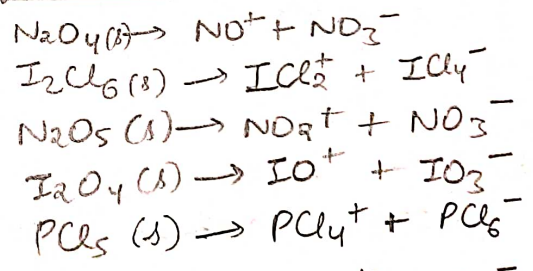 N2O4(s) → NO+ + NO3-
I2Cl6 (s) → ICl2+ + ICl4-
N2O5 (s) → NO2+ + NO3-
I2O4 (s) → IO+ + IO3-
PCl5 (s) → PCl4+ + PCl6-